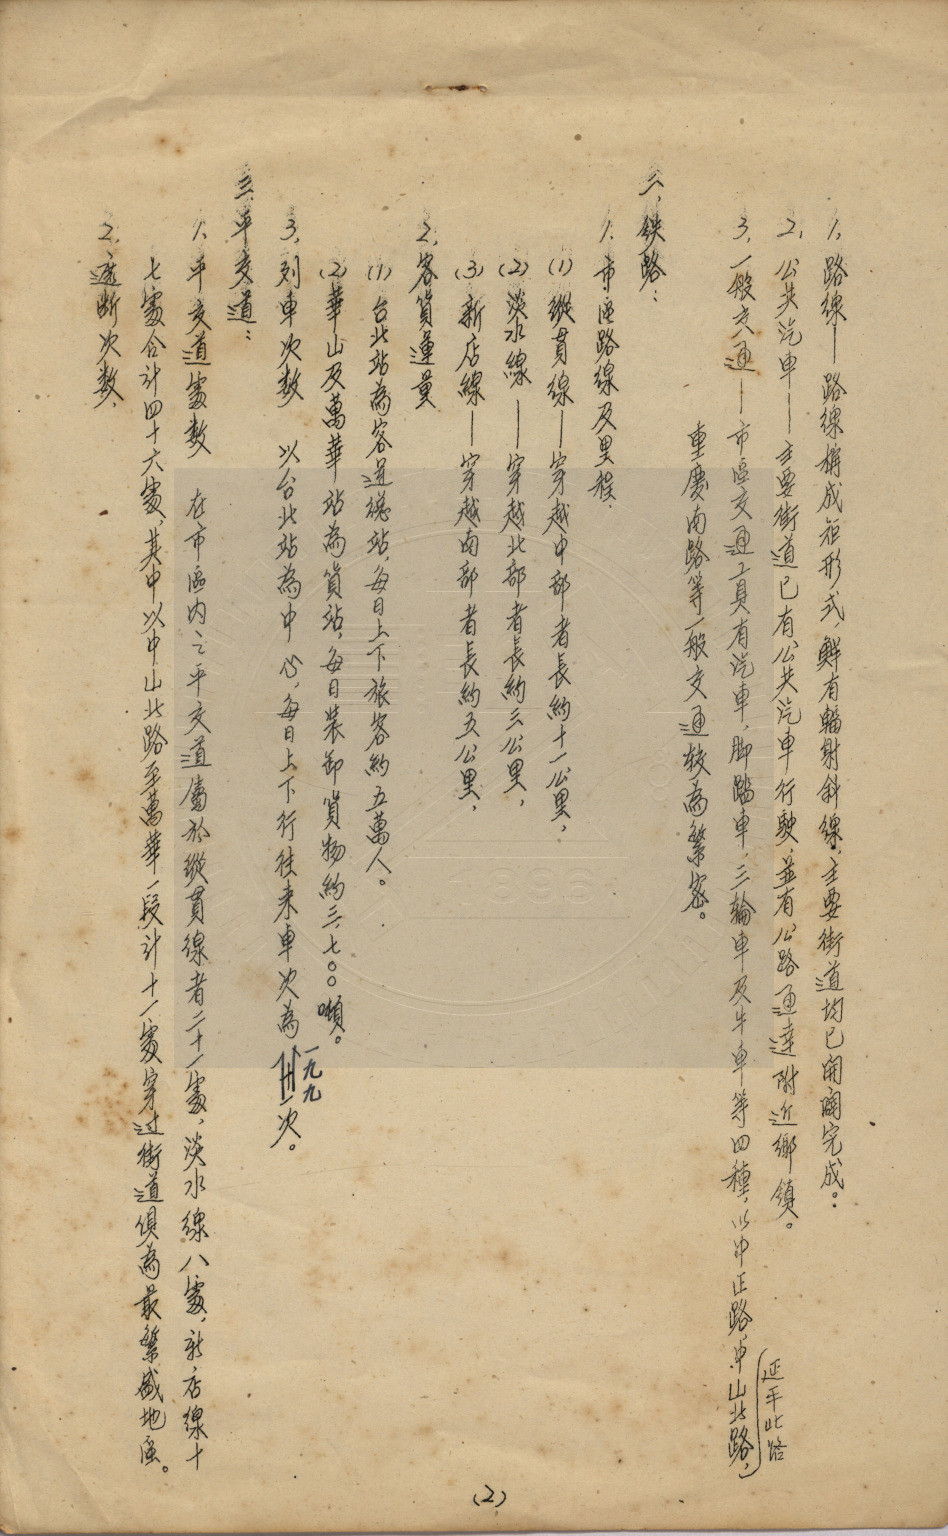 1. 路線——路線構成矩形式，鮮有輻射斜線，主要街道均已開闢完成。
2. 公共汽車——主要街道已有公共汽車行駛，並有公路通達附近鄉鎮。
3. 一般交通——市區交通工具有汽車，脚踏車，三輪車及牛車等四種，以中正路，中山北路，
延平北路
重慶南路等一般交通較為繁密。
二、鉄路：
1. 市區路線及里程.
(1) 縱貫線——穿越中部者長約十一公里，
(2) 淡水線——穿越北部者長約三公里，
(3) 新店線——穿越南部者長約五公里，
2. 客貨運量
(1) 台北站為客運總站，每日上下旅客約五萬人。
(2) 華山及萬華站為貨站，每日裝卸貨物約三、七〇〇噸。
3. 列車次數 以台北站為中心，每日上下行往來車次為一九九次。
三、平交道：
1. 平交道處數 在市區內之平交道屬於縱貫線者二十一處，淡水線八處，新店線十
七處合計四十六處，其中以中山北路至萬華一段計十一處穿过街道俱為最繁盛地區。
2. 遮断次數，
(2)
1896